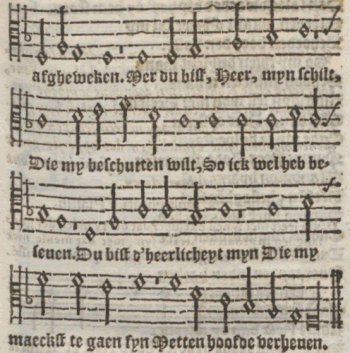 afgheweken. Mer du bist, Heer, myn schilt,
Die my beschutten wilt, So ick wel heb be-
seuen. Du bist d'heerlicheyt myn Die my
maeckst te gaen fyn Metten hoofde verheuen.